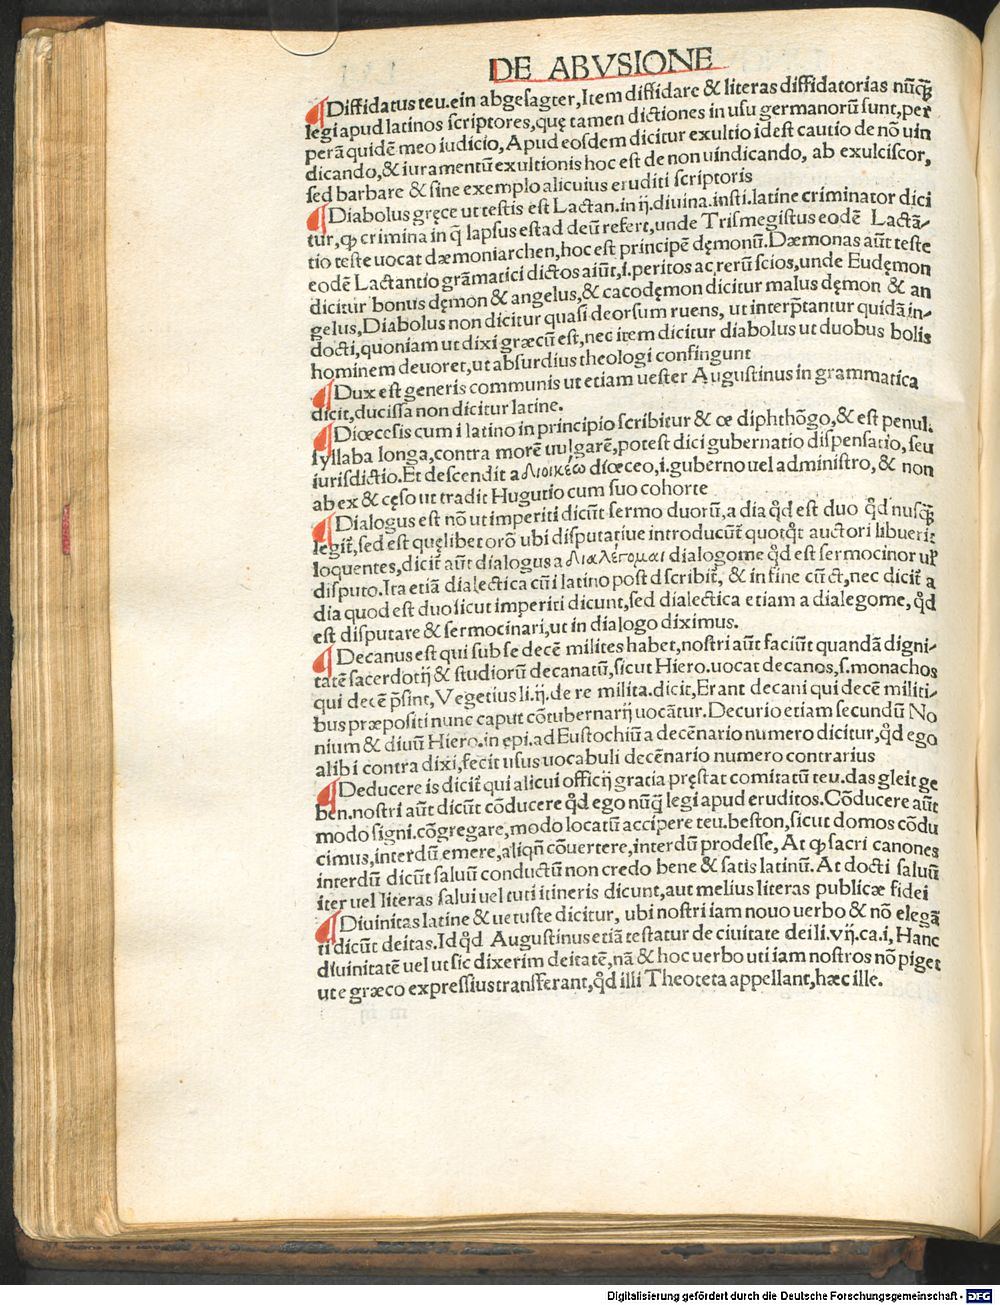 DE ABVSIONE
¶ Diffidatus teu. ein abgesagter, Item diffidare & literas diffidatorias nūq̄ꝫ
legi apud latinos scriptores, quę tamen dictiones in usu germanorū sunt, per
perā quidē meo iudicio, Apud eosdem dicitur exultio idest cautio de nō uin
dicando, & iuramentū exultionis hoc est de non uindicando, ab exulciscor,
sed barbare & sine exemplo alicuius eruditi scriptoris
¶ Diabolus gręce ut testis est Lactan. in ij. diuina. insti. latine criminator dici
tur, ꝙ crimina in q̄ lapsus est ad deū refert, unde Trismegistus eodē Lactā-
tio teste uocat dæmoniarchen, hoc est principē dęmonū. Dæmonas aūt teste
eodē Lactantio grāmatici dictos aiūt, i. peritos ac rerū scios, unde Eudęmon
dicitur bonus dęmon & angelus, & cacodęmon dicitur malus dęmon & an
gelus, Diabolus non dicitur quasi deorsum ruens, ut interp̄tantur quidā in-
docti, quoniam ut dixi græcū est, nec item dicitur diabolus ut duobus bolis
hominem deuoret, ut absurdius theologi confingunt
¶ Dux est generis communis ut etiam uester Augustinus in grammatica
dicit, ducissa non dicitur latine.
¶ Diœcesis cum i latino in principio scribitur & œ diphthōgo, & est penul.
syllaba longa, contra morē uulgarē, potest dici gubernatio dispensatio, seu
iurisdictio. Et descendit a διοικέω diœceo, i. guberno uel administro, & non
ab ex & cęso ut tradit Hugutio cum suo cohorte
¶ Dialogus est nō ut imperiti dicūt sermo duorū, a dia qd̄ est duo qd̄ nusq̄ꝫ
legit̄, sed est quęlibet orō ubi disputatiue introducūt̄ quotq̄t auctori libuerit
loquentes, dicit̄ aūt dialogus a διαλέγομαι dialogome qd̄ est sermocinor uł
disputo. Ita etiā dialectica cū i latino post d scribit̄, & in fine cū ct, nec dicit̄ a
dia quod est duo sicut imperiti dicunt, sed dialectica etiam a dialegome, qd̄
est disputare & sermocinari, ut in dialogo diximus.
¶ Decanus est qui sub se decē milites habet, nostri aūt faciūt quandā digni-
tatē sacerdotij & studiorū decanatū, sicut Hiero. uocat decanos, s. monachos
qui decē p̄sint, Vegetius li. ij. de re milita. dicit, Erant decani qui decē militi-
bus præpositi nunc caput cōtubernarij uocātur. Decurio etiam secundū No
nium & diuū Hiero. in epi. ad Eustochiū a decēnario numero dicitur, qd̄ ego
alibi contra dixi, fecit usus uocabuli decēnario numero contrarius
¶ Deducere is dicit̄ qui alicui officij gratia pręstat comitatū teu. das gleit ge
ben. nostri aūt dicūt cōducere qd̄ ego nūq̄ legi apud eruditos. Cōducere aūt
modo signi. cōgregare, modo locatū accipere teu. beston, sicut domos cōdu
cimus, interdū emere, aliqn̄ cōuertere, interdū prodesse, At ꝙ sacri canones
interdū dicūt saluū conductū non credo bene & satis latinū. At docti saluū
iter uel literas salui uel tuti itineris dicunt, aut melius literas publicæ fidei
¶ Diuinitas latine & uetuste dicitur, ubi nostri iam nouo uerbo & nō elegā
ti dicūt deitas. Id qd̄ Augustinus etiā testatur de ciuitate dei li. vij. ca. i, Hanc
diuinitatē uel ut sic dixerim deitatē, nā & hoc uerbo uti iam nostros nō piget
ut e græco expressius transferant, qd̄ illi Theoteta appellant, hæc ille.
Digitalisierung gefördert durch die Deutsche Forschungsgemeinschaft - DFG